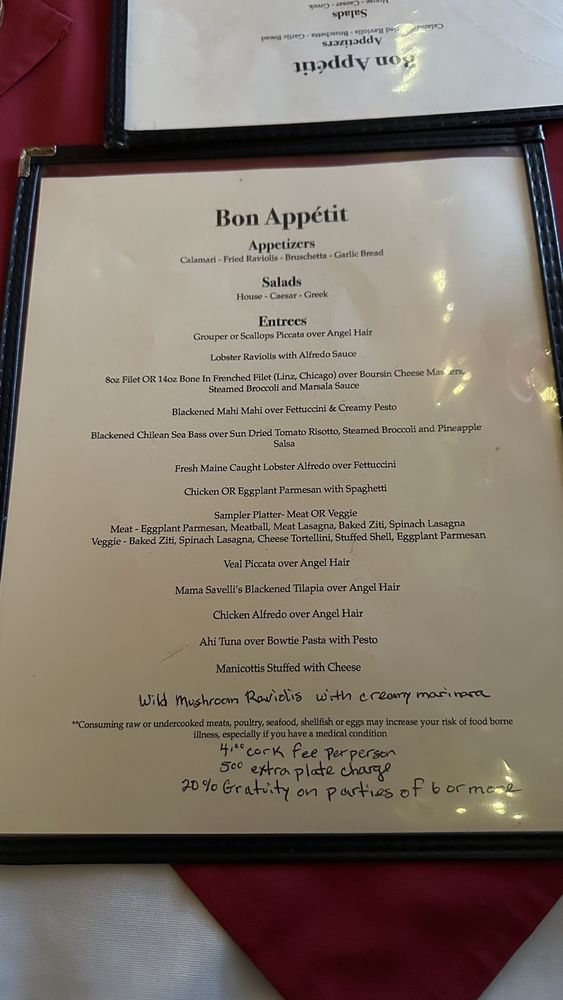 Bon Appétit
Appetizers
Calamari - Fried Raviolis - Bruschetta - Garlic Bread
Salads
House - Caesar - Greek
Bon Appétit
Appetizers
Calamari - Fried Raviolis - Bruschetta - Garlic Bread
Salads
House - Caesar - Greek
Entrees
Grouper or Scallops Piccata over Angel Hair
Lobster Raviolis with Alfredo Sauce
8oz Filet OR 14oz Bone In Frenched Filet (Linz, Chicago) over Boursin Cheese Mashers,
Steamed Broccoli and Marsala Sauce
Blackened Mahi Mahi over Fettuccini & Creamy Pesto
Blackened Chilean Sea Bass over Sun Dried Tomato Risotto, Steamed Broccoli and Pineapple
Salsa
Fresh Maine Caught Lobster Alfredo over Fettuccini
Chicken OR Eggplant Parmesan with Spaghetti
Sampler Platter- Meat OR Veggie
Meat - Eggplant Parmesan, Meatball, Meat Lasagna, Baked Ziti, Spinach Lasagna
Veggie - Baked Ziti, Spinach Lasagna, Cheese Tortellini, Stuffed Shell, Eggplant Parmesan
Veal Piccata over Angel Hair
Mama Savelli's Blackened Tilapia over Angel Hair
Chicken Alfredo over Angel Hair
Ahi Tuna over Bowtie Pasta with Pesto
Manicottis Stuffed with Cheese
Wild Mushroom Raviolis with creamy marinara
**Consuming raw or undercooked meats, poultry, seafood, shellfish or eggs may increase your risk of food borne
illness, especially if you have a medical condition
4.00 cork fee per person
5.00 extra plate charge
20% Gratuity on parties of 6 or more